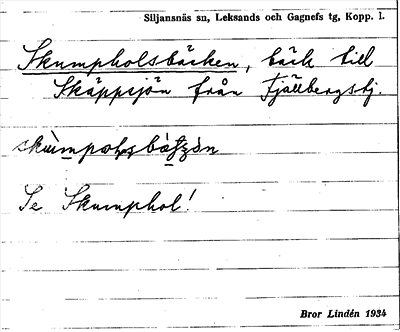 Siljansnäs sn, Leksands och Gagnefs tg, Kopp. l.
Skumpholsbäcken, bäck till
Skäppsjön från Fjällbergstj.
Se Skumphol!
Bror Lindén 1934